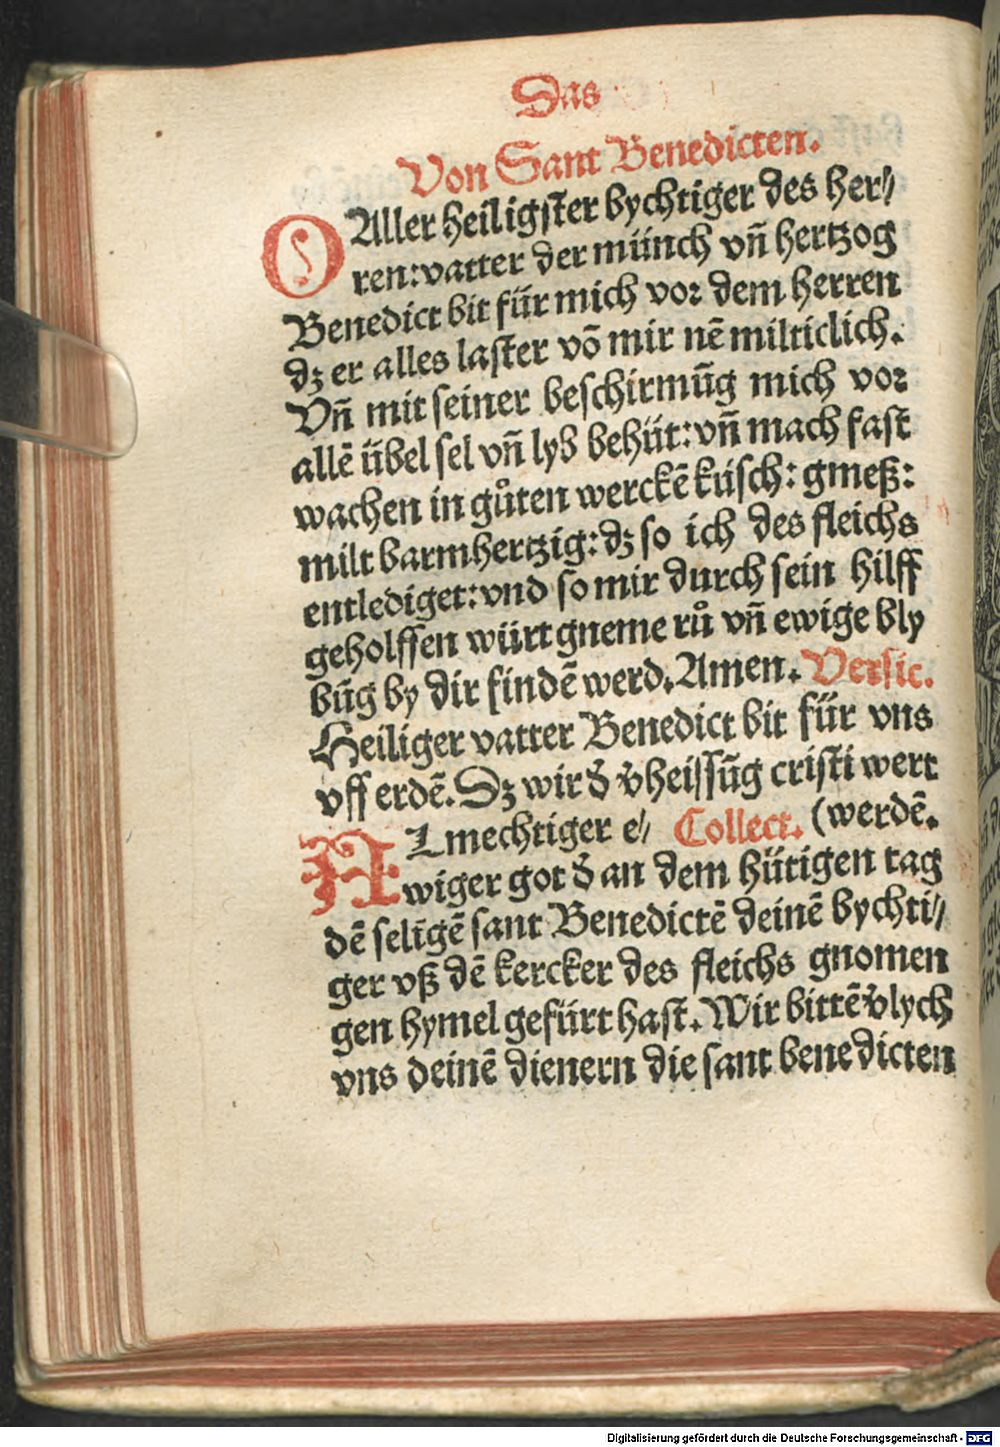 Das
Von Sant Benedicten.
O Aller heiligster bychtiger des her⸗
ren: vatter der münch vñ hertzog
Benedict bit für mich vor dem herren
dz er alles laster võ mir nẽ milticlich.
Vñ mit seiner beschirmũg mich vor
allẽ übel sel vñ lyb behüt: vñ mach fast
wachen in gůten werckẽ küsch: gmeß:
milt barmhertzig: dz so ich des fleichs
entlediget: vnd so mir durch sein hilff
geholffen würt gneme rů vñ ewige bly
bũg by dir findẽ werd. Amen. Versic.
Heiliger vatter Benedict bit für vns
vff erdẽ. Dz wir d̕ v̕heissũg cristi wert
ALmechtiger e⸗ Collect. (werdẽ.
wiger got d̕ an dem hütigen tag
dẽ seligẽ sant Benedictẽ deinẽ bychti⸗
ger vß dẽ kercker des fleichs gnomen
gen hymel gefürt hast. Wir bittẽ v̕lych
vns deinẽ dienern die sant benedicten
Digitalisierung gefördert durch die Deutsche Forschungsgemeinschaft - DFG